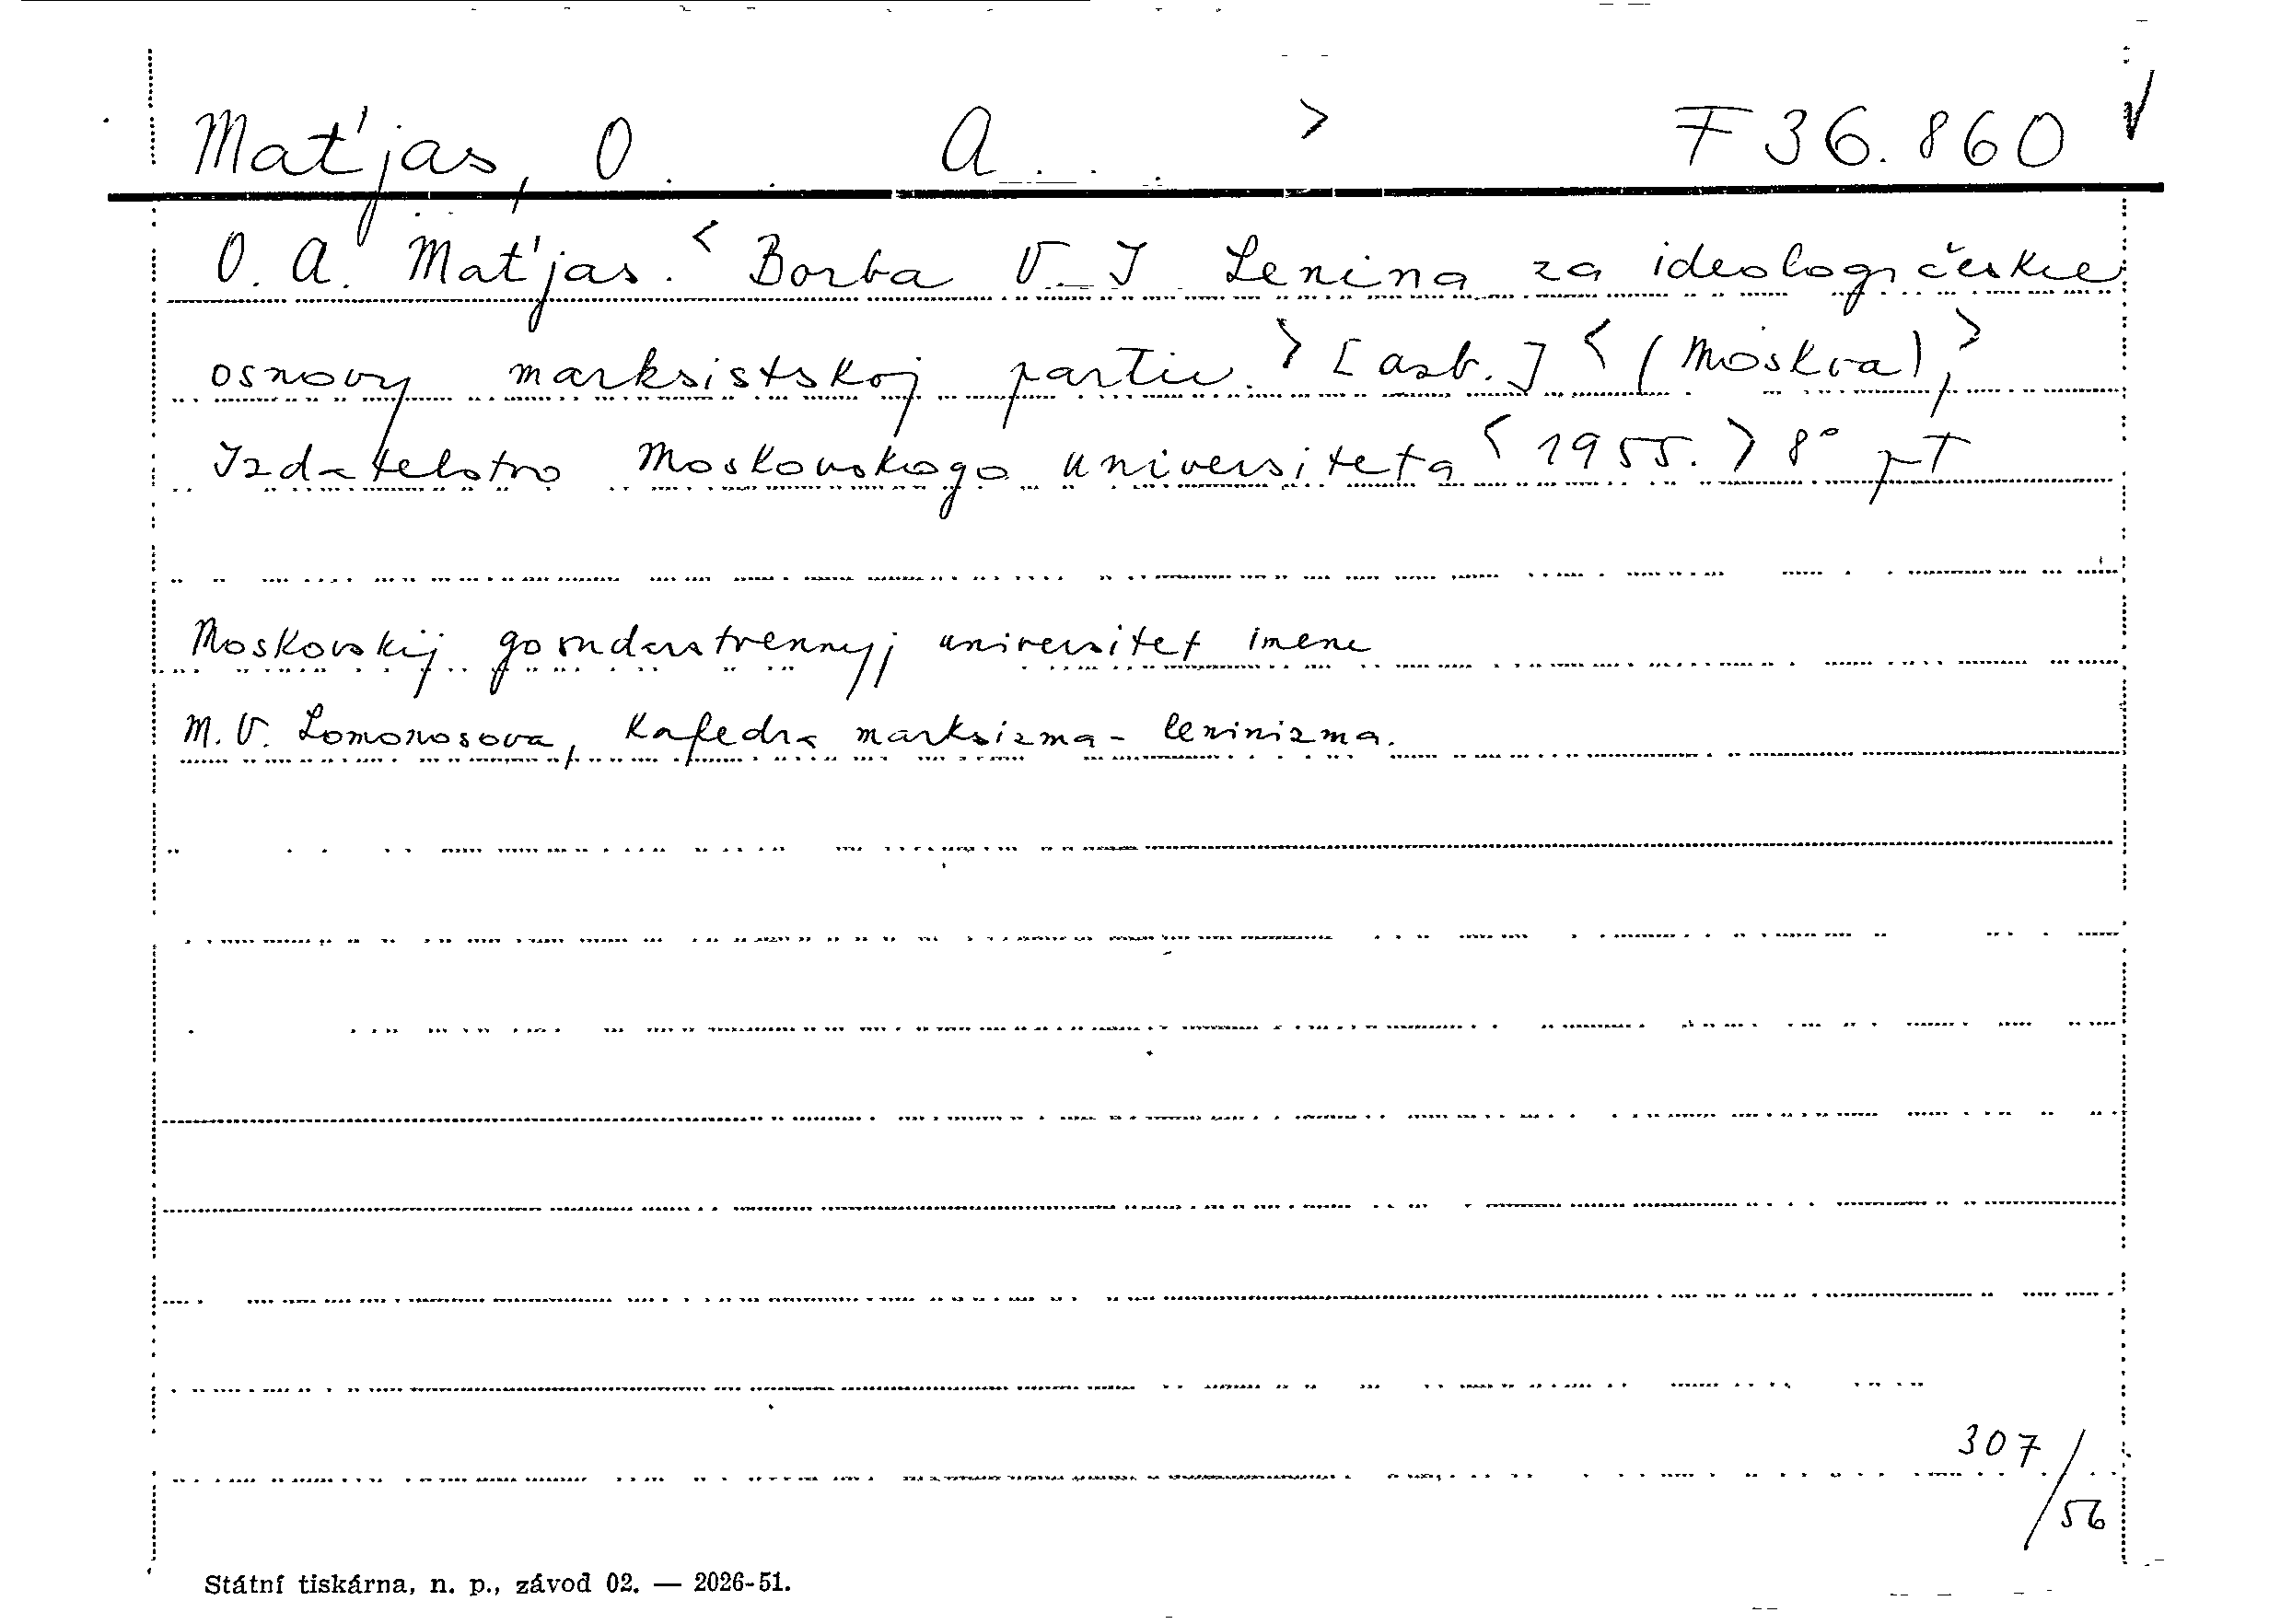 Mat'jas, O. A. > F 36.860 √
O. A. Mat'jas. < Borba V. I. Lenina za ideologičeskie
osnovy marksistskoj partii. > [azb.] < (Moskva), >
Izdatelstvo Moskovskogo universiteta < 1955. > 8°
Moskovskij gosudarstvennyj universitet imeni
M. V. Lomonosova, Kafedra marksizma-leninizma.
307/56
Státní tiskárna, n. p., závod 02. — 2026-51.